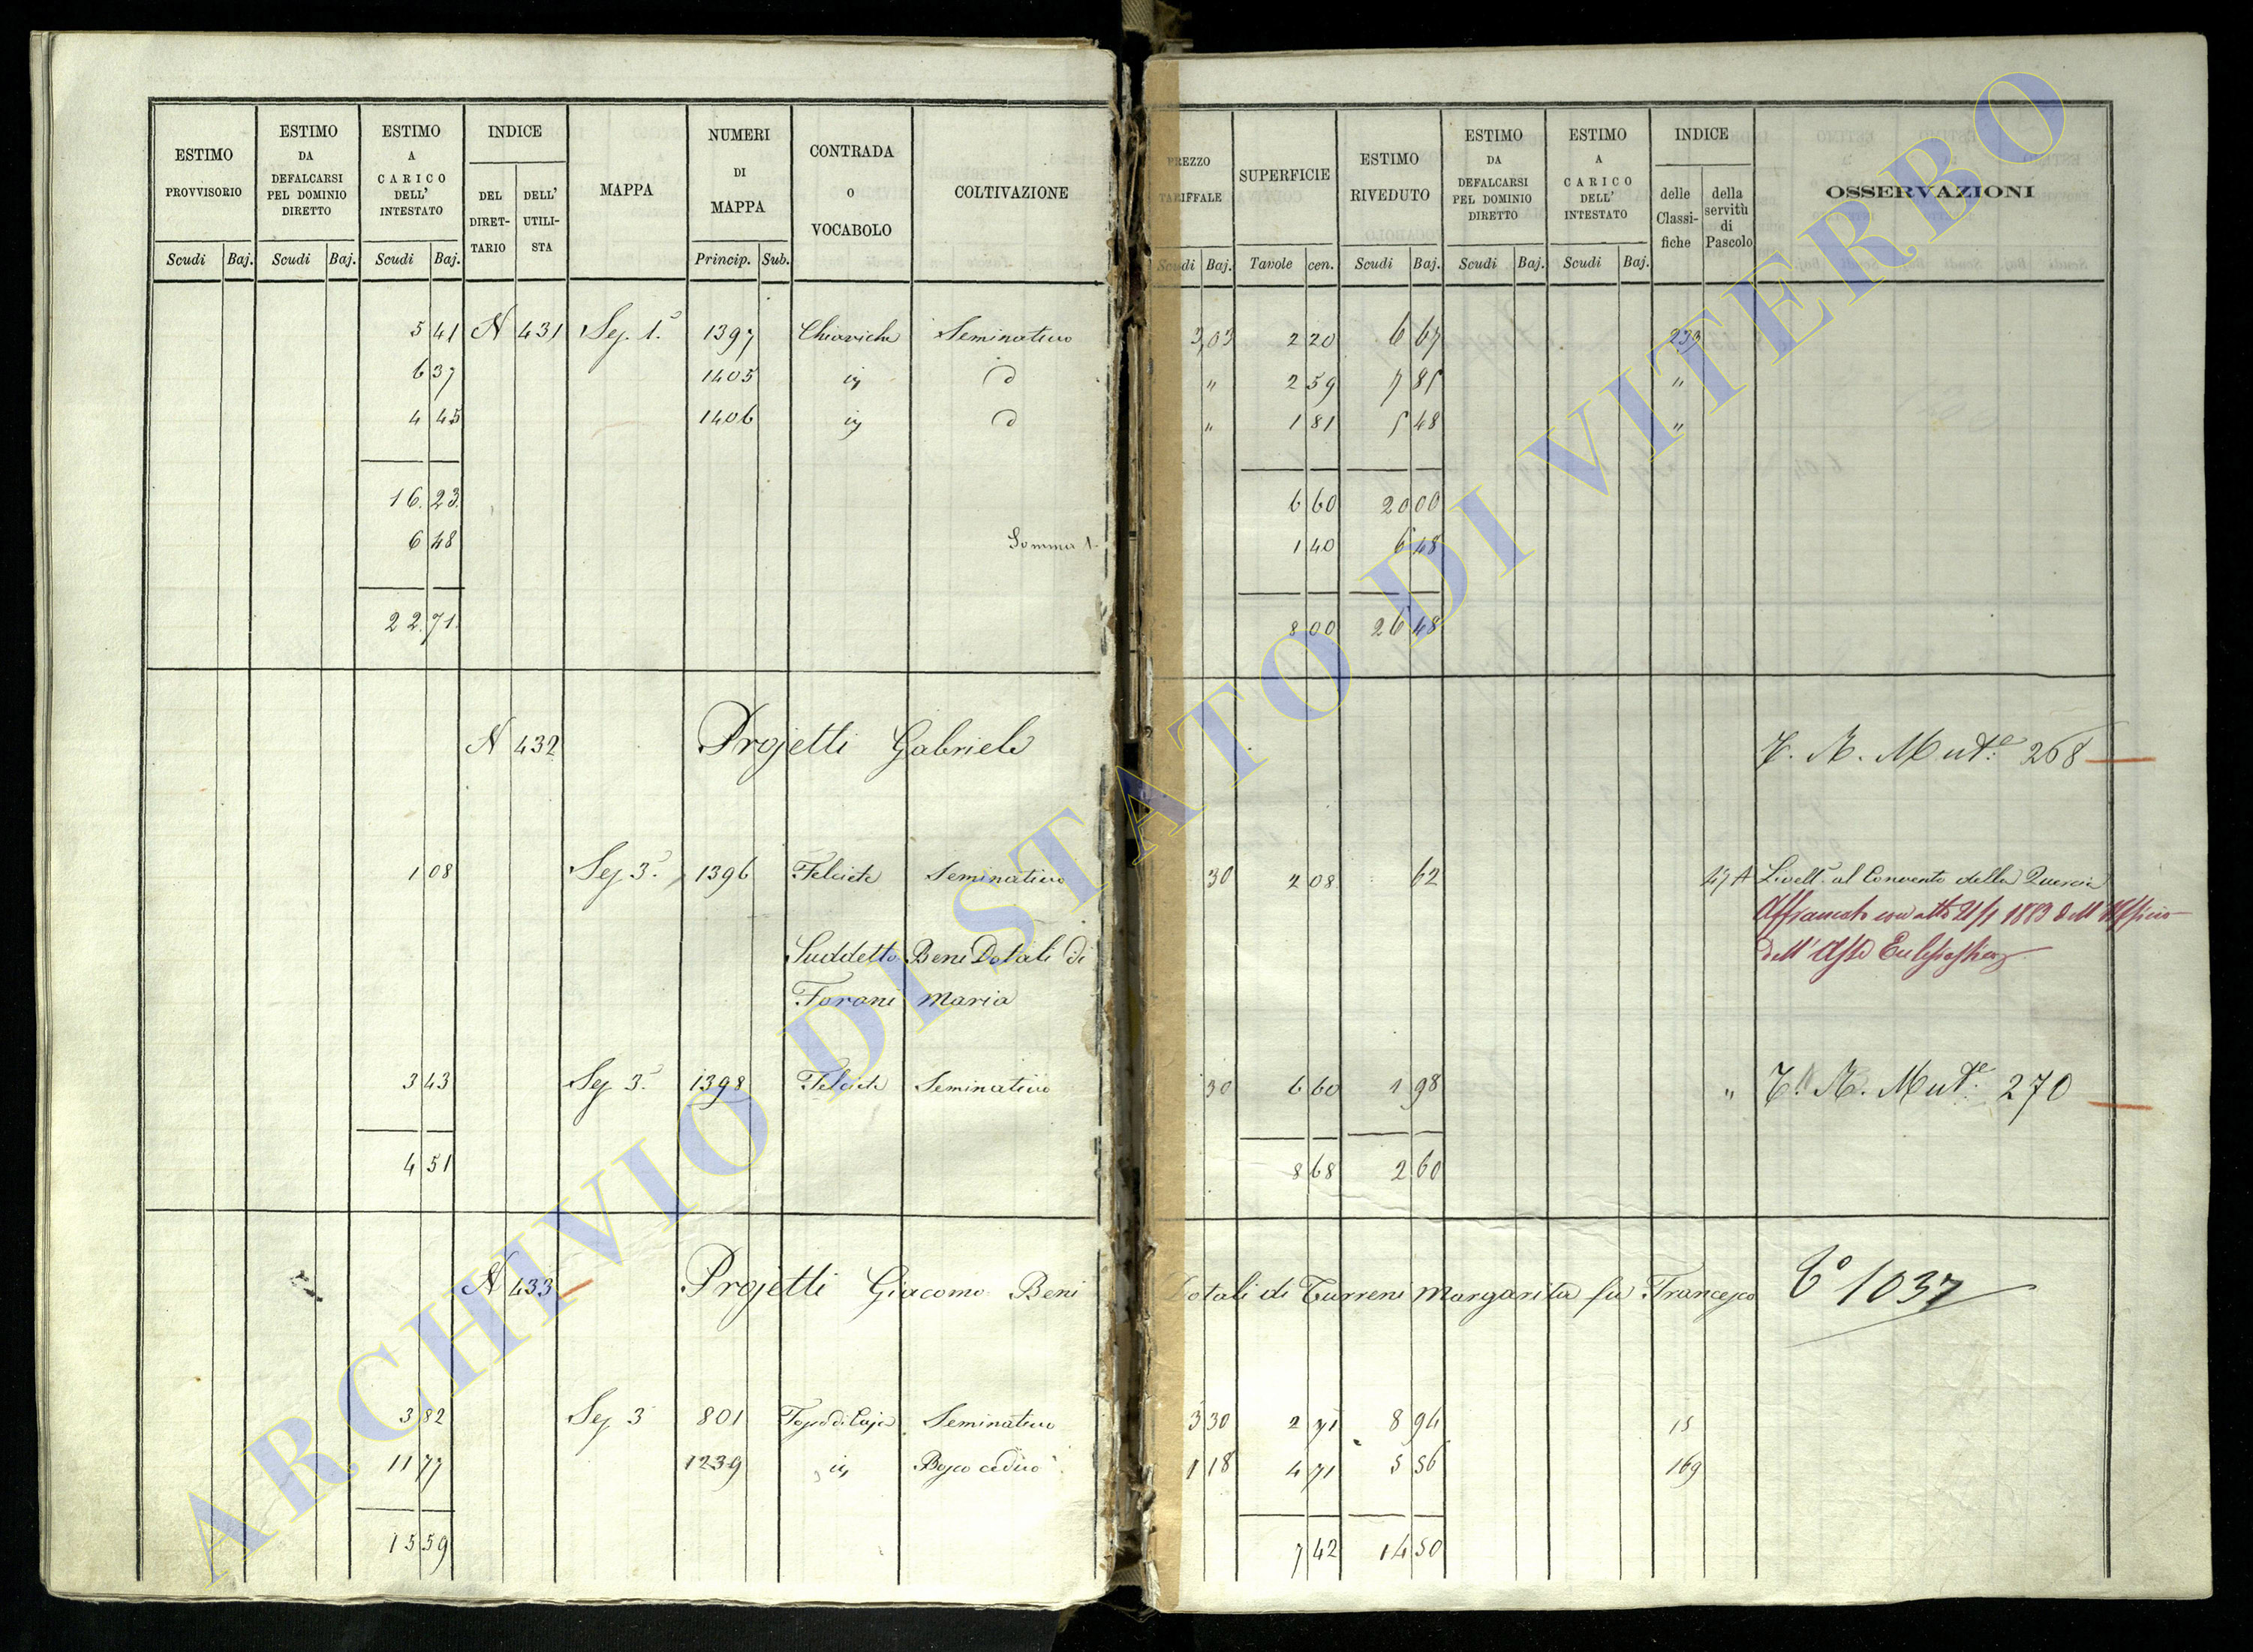 ESTIMO PROVVISORIO Scudi Baj.
ESTIMO DA DEFALCARSI PEL DOMINIO DIRETTO Scudi Baj.
ESTIMO A CARICO DELL' INTESTATO Scudi Baj.
INDICE DEL DIRET-TARIO DELL' UTILI-STA
MAPPA
NUMERI DI MAPPA Princip. Sub.
CONTRADA o VOCABOLO
COLTIVAZIONE
PREZZO TARIFFALE Scudi Baj.
SUPERFICIE Tavole cen.
ESTIMO RIVEDUTO Scudi Baj.
ESTIMO DA DEFALCARSI PEL DOMINIO DIRETTO Scudi Baj.
ESTIMO A CARICO DELL' INTESTATO Scudi Baj.
INDICE delle Classi-fiche della servitù di Pascolo
OSSERVAZIONI
5 41 N 431 Sez. 1ª 1397 Chiaviche Seminativo 3,03 2 20 6 67 233
6 37 1405 id d " 2 59 7 85 "
4 45 1406 id d " 1 81 5 48 "
16.23 6 60 20 00
6 48 Somma 1 40 6 48
22.71. 8 00 26 48
N 432 Projetti Gabriele T. R. Mut.e 268
1 08 Sez 3ª 1396 Felciete Seminativo 30 2 08 62 A Livell. al Convento della Quercia
dell' Asse
Suddetto Beni Dotali di
Forani Maria
3 43 Sez 3ª 1398 Felciete Seminativo 30 6 60 1 98 " R. Mut.e 270
4 51 8 68 2 60
N 433 Projetti Giacomo Beni Dotali di Turreni Margarita fu Francesco Cº 1037
3 82 Sez 3 801 Seminativo 3 30 2 71 8 94 15
11 77 1239 id Bosco ceduo 1 18 4 71 5 56 169
15 59 7 42 14 50
ARCHIVIO DI STATO DI VITERBO